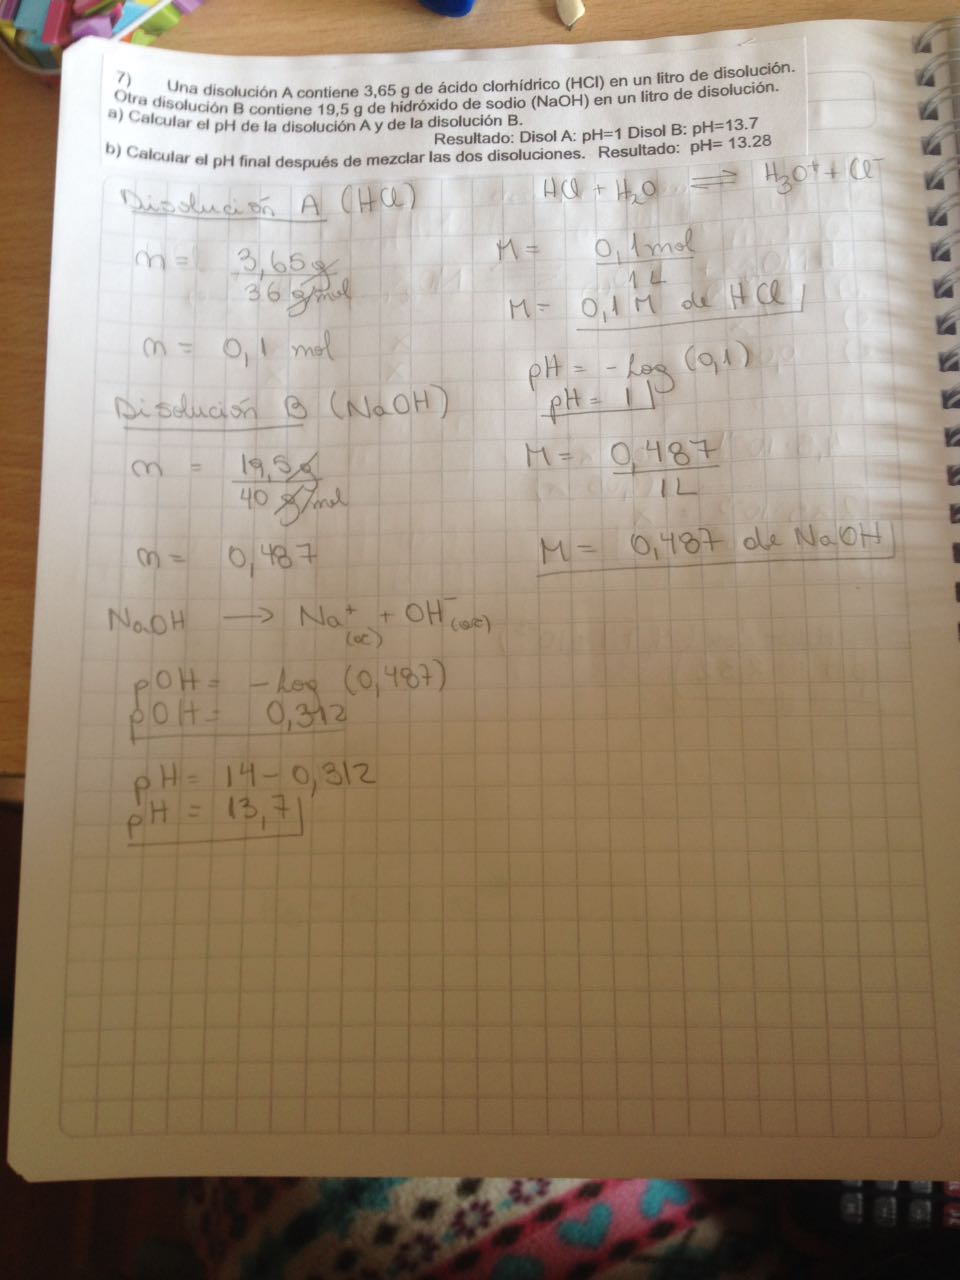 7) Una disolución A contiene 3,65 g de ácido clorhídrico (HCl) en un litro de disolución.
Otra disolución B contiene 19,5 g de hidróxido de sodio (NaOH) en un litro de disolución.
a) Calcular el pH de la disolución A y de la disolución B.
Resultado: Disol A: pH=1 Disol B: pH=13.7
b) Calcular el pH final después de mezclar las dos disoluciones. Resultado: pH= 13.28
Disolución A (HCl)
HCl + H₂O ⇌ H₃O⁺ + Cl⁻
n = 3,65 g / 36 g/mol
n = 0,1 mol
M = 0,1 mol / 1 L
M = 0,1 M de HCl
pH = - Log (0,1)
pH = 1
Disolución B (NaOH)
n = 19,5 g / 40 g/mol
n = 0,487
M = 0,487 / 1 L
M = 0,487 de NaOH
NaOH → Na⁺(ac) + OH⁻(ac)
pOH = - Log (0,487)
pOH = 0,312
pH = 14 - 0,312
pH = 13,7